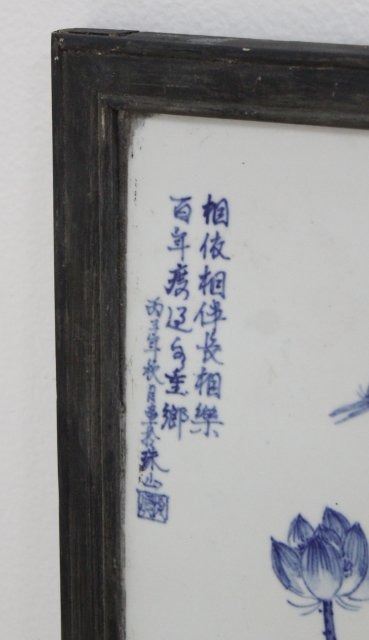 相依相伴長相樂
百年度過白雲鄉
丙子年秋月畫於珠山